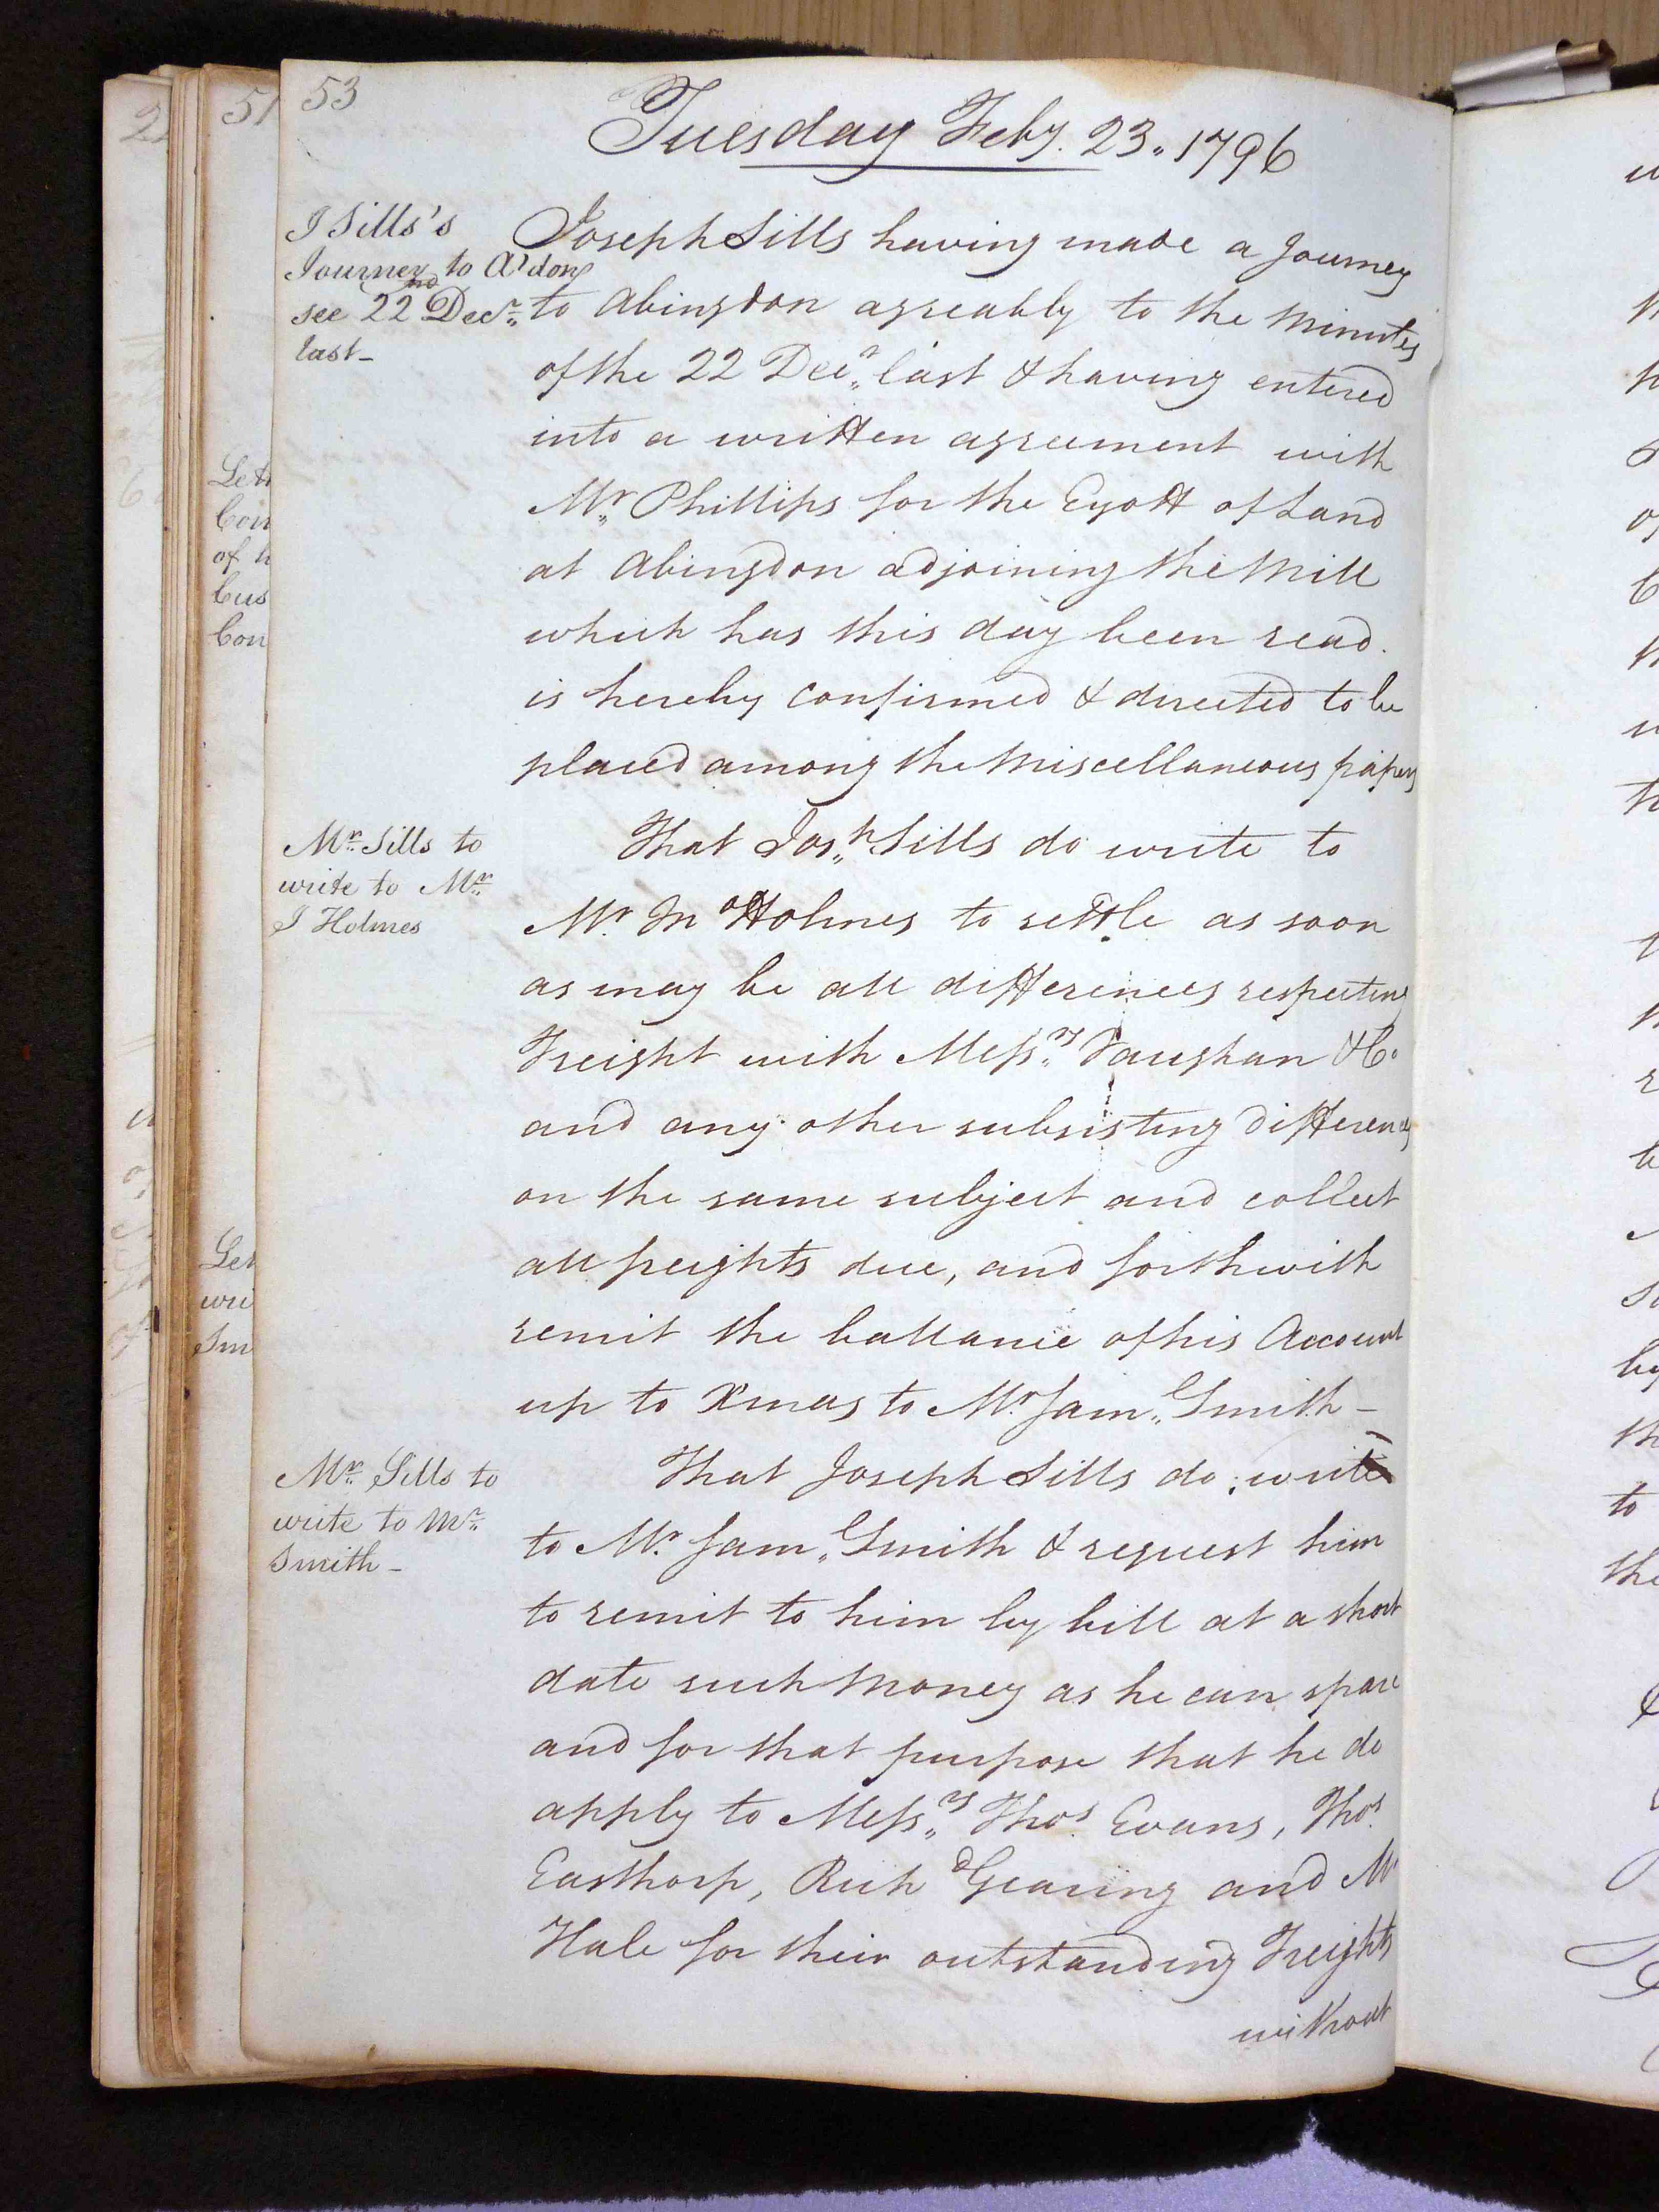 53
Tuesday Feby. 23. 1796
J Sills's
Journey to A'don
see 22nd Decr.
last-
Joseph Sills having made a Journey
to Abingdon agreably to the Minutes
of the 22 Decr. last & having entered
into a written agreement with
Mr. Phillips for the Eyott of Land
at Abingdon adjoining the Mill
which has this day been read.
is hereby confirmed & directed to be
placed among the Miscellaneous papers
Mr. Sills to
write to Mr.
J Holmes
That Josh. Sills do write to
Mr. Holmes to settle as soon
as may be all differences respecting
Freight with Messrs. Vaughan & Co
and any other subsisting differences
on the same subject and collect
all freights due, and forthwith
remit the ballance of his Account
up to Xmas to Mr. Jam. Smith -
Mr. Sills to
write to Mr.
Smith -
That Joseph Sills do write
to Mr. Jam. Smith & request him
to remit to him by bill at a short
date such Money as he can spare
and for that purpose that he do
apply to Messrs. Thos. Evans, Thos.
Easthorp, Richd Gearing and Mr
Hale for their outstanding Freights
without
51
Let
Con
of
Cus
Con
wri
Sm
to
the